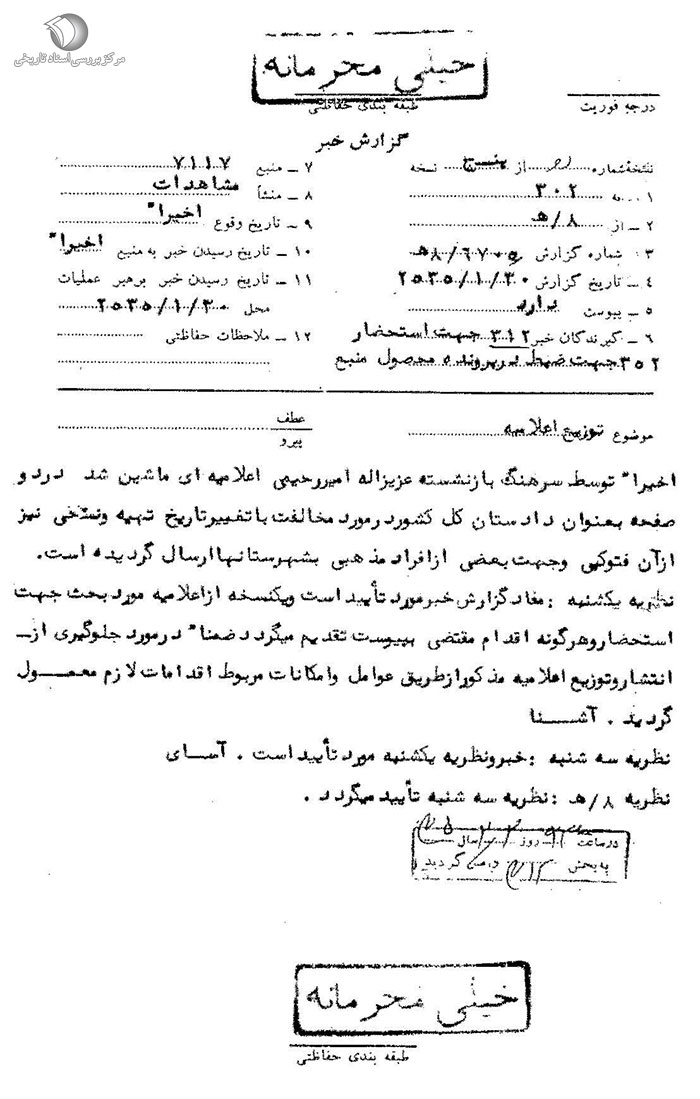 مرکز بررسی اسناد تاریخی
خیلی محرمانه
طبقه بندی حفاظتی
درجه فوریت
گزارش خبر
نسخهٔ شماره از پنج نسخه
۱ ـ به ۳۰۲
۲ ـ از ۸/هـ
۳ ـ شماره گزارش ۸/۶۷۰۵هـ
۴ ـ تاریخ گزارش ۲۵۳۵/۱/۳۰
۵ ـ پیوست دارد
۶ ـ گیرندگان خبر ۳۱۲ جهت استحضار
۳۵۲ جهت ضبط در پرونده محصول منبع
۷ ـ منبع ۷۱۱۷
۸ ـ منشأ مشاهدات
۹ ـ تاریخ وقوع اخیرا"
۱۰ ـ تاریخ رسیدن خبر به منبع اخیرا"
۱۱ ـ تاریخ رسیدن خبر برهبر عملیات
محل ۲۵۳۵/۱/۳۰
۱۲ ـ ملاحظات حفاظتی
موضوع توزیع اعلامیه
عطف
پیرو
اخیرا" توسط سرهنگ بازنشسته عزیزاله امیررحیمی اعلامیه ای ماشین شد درد و
صفحه بعنوان دادستان کل کشوردرمورد مخالفت باتغییرتاریخ تهیه ونسخی نیز
ازآن فتوکپی وجهت بعضی ازافراد مذهبی بشهرستانهاارسال گردیده است.
نظریه یکشنبه : مفادگزارش خبرمورد تأیید است ویکنسخه ازاعلامیه مورد بحث جهت
استحضاروهرگونه اقدام مقتضی بپیوست تقدیم میگردد ضمنا" درمورد جلوگیری از ـ
انتشاروتوزیع اعلامیه مذکورازطریق عوامل وامکانات مربوط اقدامات لازم معمـــول
گردید . آشـــنا
نظریه سه شنبه : خبرونظریه یکشنبه مورد تأیید است . آسـای
نظریه ۸/هـ : نظریه سه شنبه تأیید میگردد .
در ساعت روز سال
به بخش ۳۱۲ واصل گردید
خیلی محرمانه
طبقه بندی حفاظتی